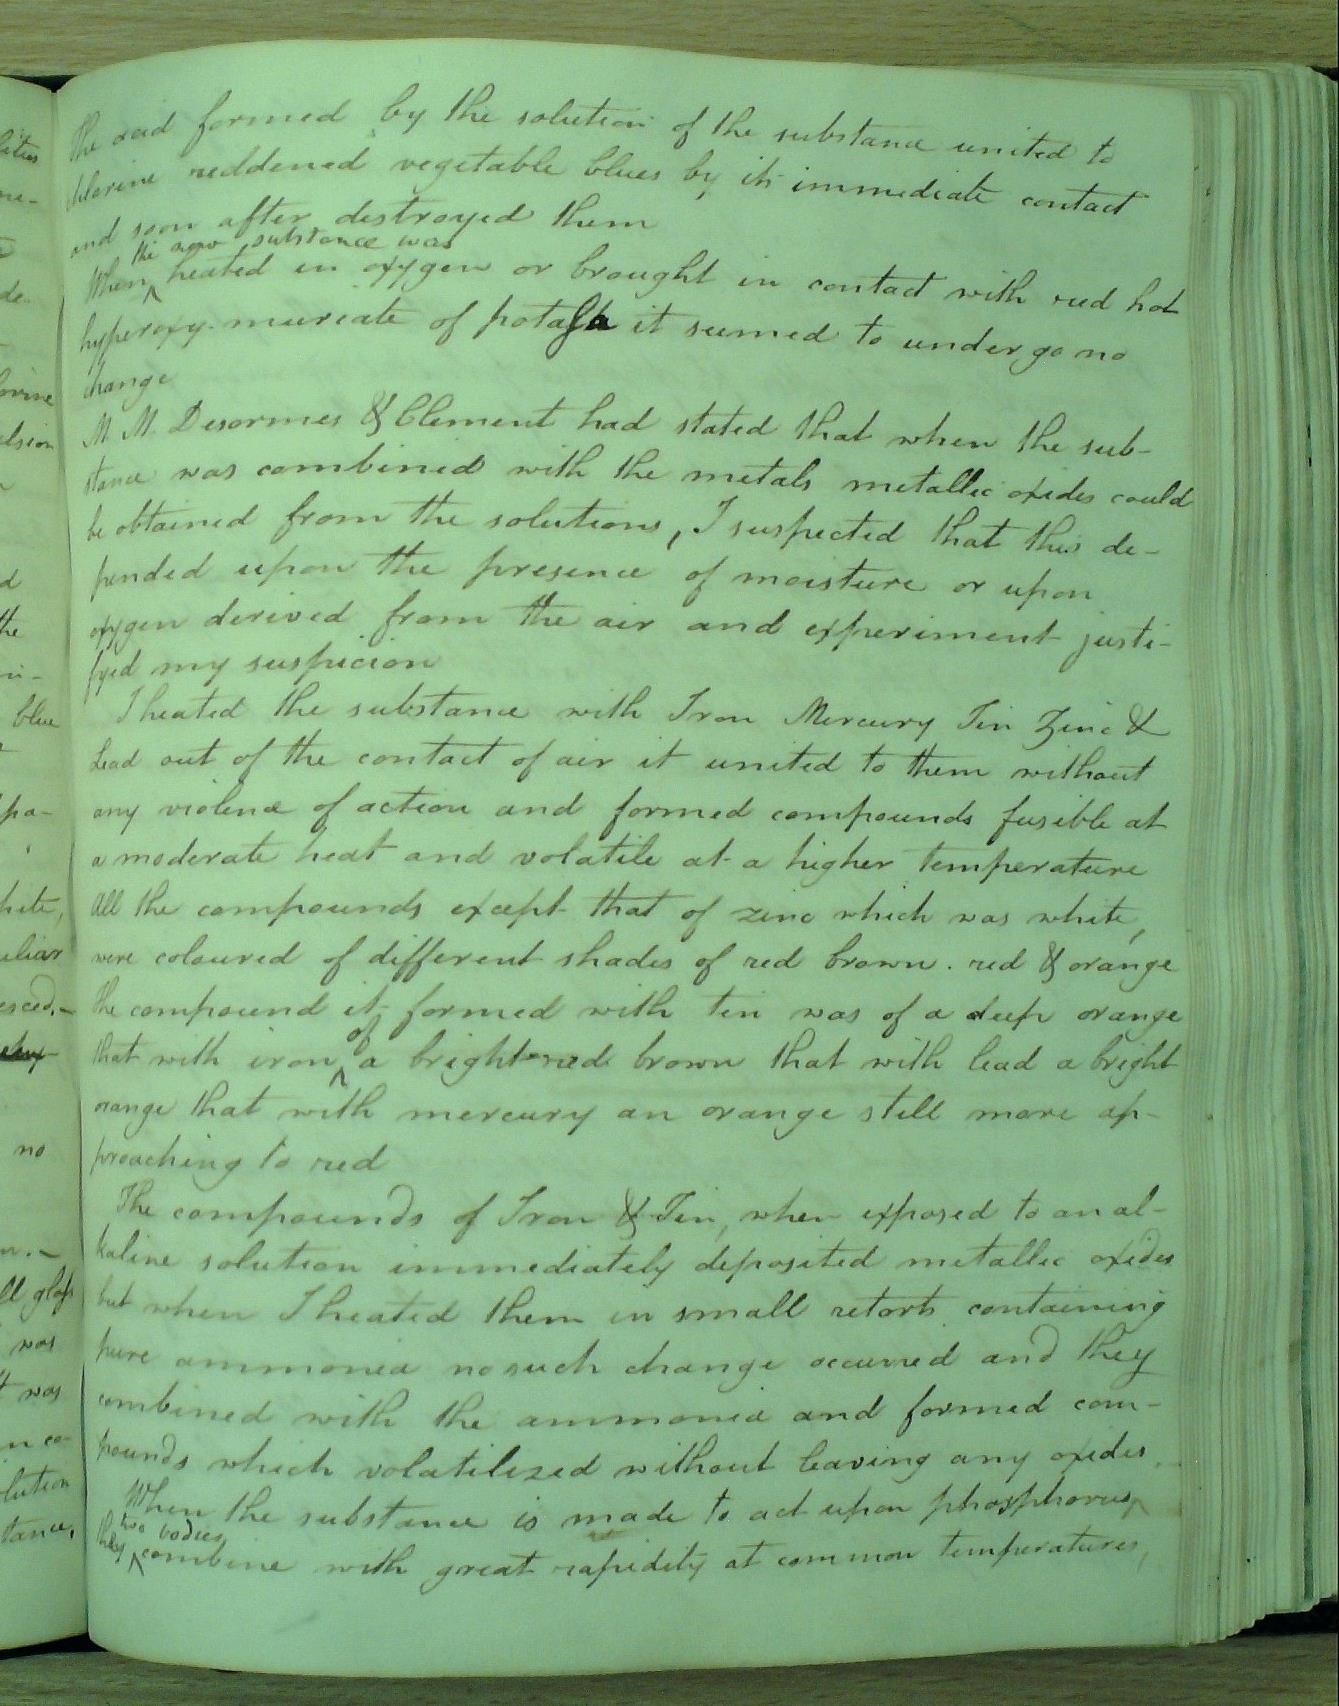 the acid formed by the solution of the substance united to
chlorine reddened vegetable blues by its immediate contact
and soon after destroyed them
the new substance was
When heated in oxygen or brought in contact with red hot
hyperoxy-muriate of potash it seemed to undergo no
change
M. M. Desormes & Clement had stated that when the sub-
stance was combined with the metals metallic oxides could
be obtained from the solutions, I suspected that this de-
pended upon the presence of moisture or upon
oxygen derived from the air and experiment justi-
fyed my suspicion
I heated the substance with Iron Mercury Tin Zinc &
Lead out of the contact of air it united to them without
any violence of action and formed compounds fusible at
a moderate heat and volatile at a higher temperature
All the compounds except that of zinc which was white,
were coloured of different shades of red brown. red & orange
the compound it formed with tin was of a deep orange
of
that with iron a bright red brown that with lead a bright
orange that with mercury an orange still more ap-
proaching to red
The compounds of Iron & Tin, when exposed to an al-
kaline solution immediately deposited metallic oxides
but when I heated them in small retorts containing
pure ammonia no such change occurred and they
combined with the ammonia and formed com-
pounds which volatilized without leaving any oxides.
When the substance is made to act upon phosphorus,
two bodies
the combine with great rapidity at common temperatures,